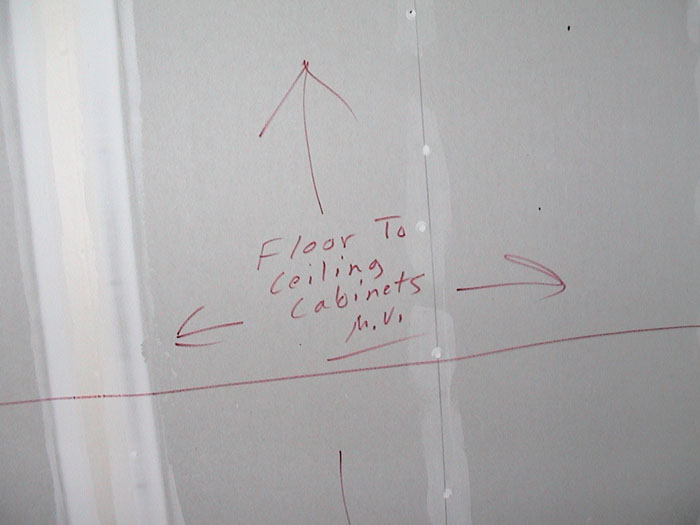 Floor To
Ceiling
Cabinets
M.V.